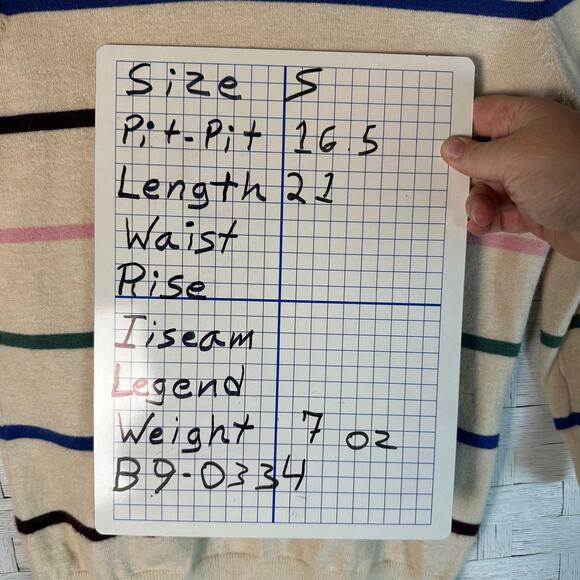 Size S
Pit-Pit 16.5
Length 21
Waist
Rise
Iiseam
Legend
Weight 7 oz
B9-0334